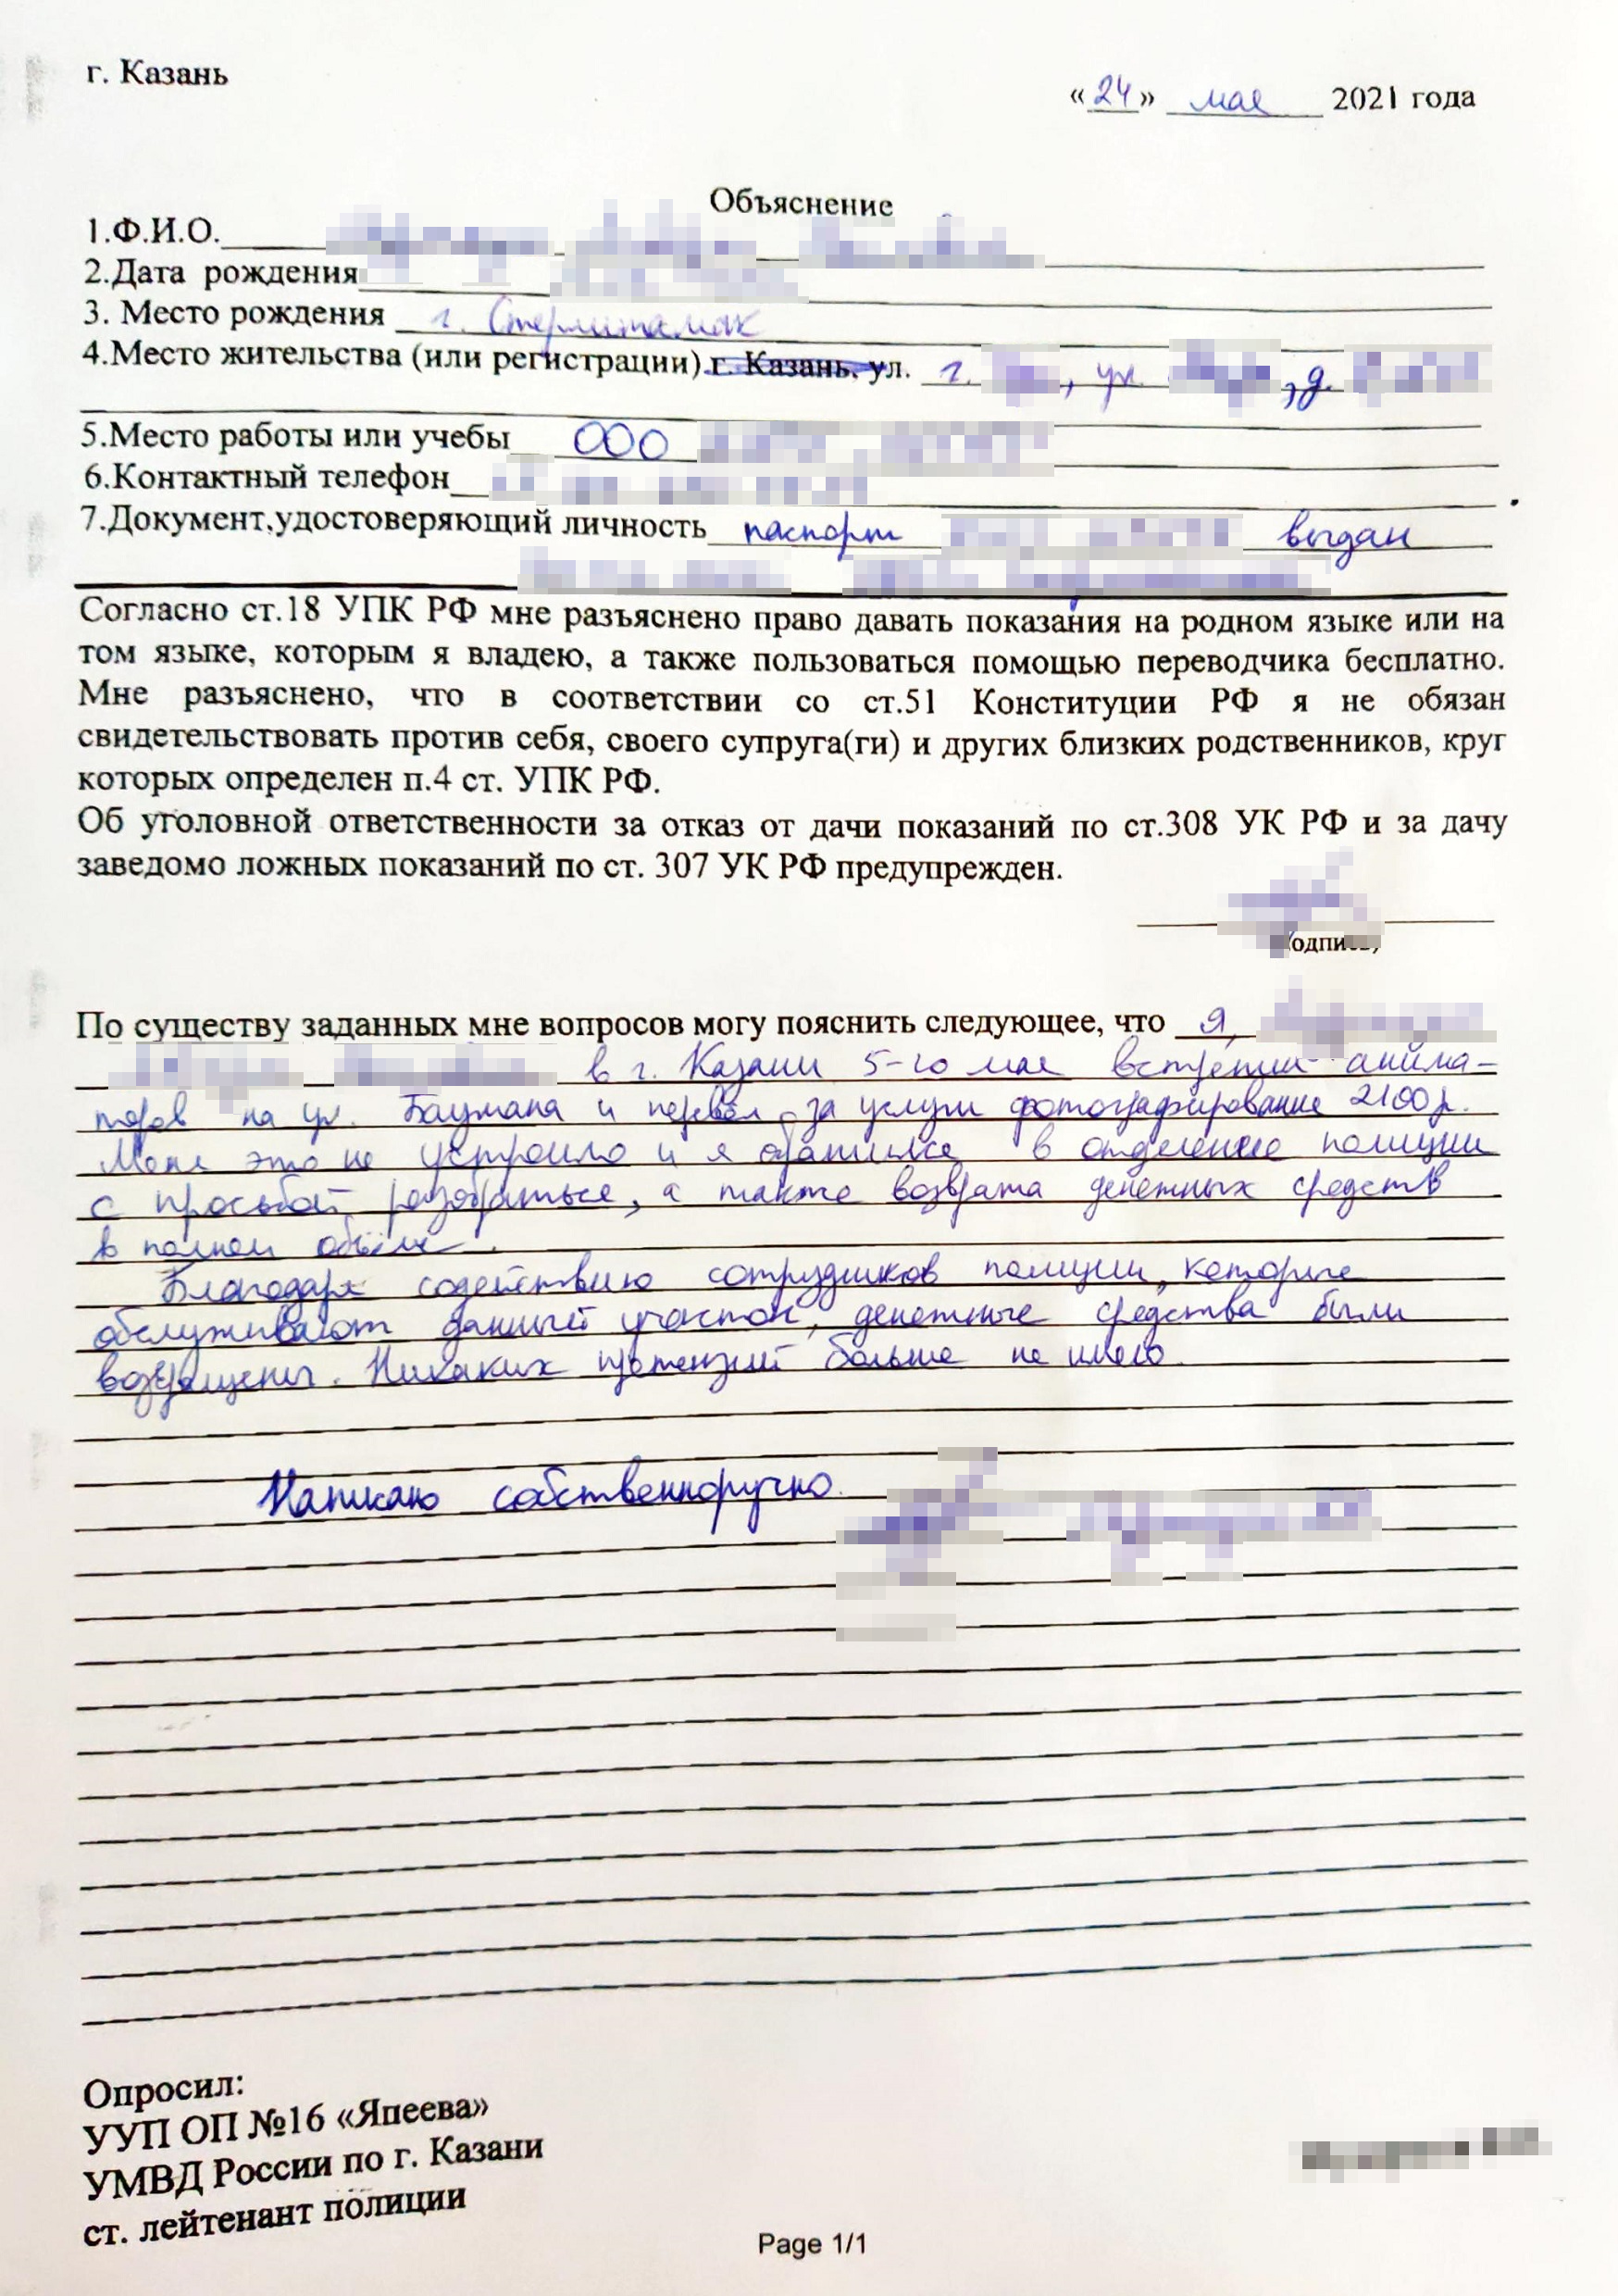 г. Казань
«24» мая 2021 года
Объяснение
1.Ф.И.О.
2.Дата рождения
3. Место рождения г. Стерлитамак
4.Место жительства (или регистрации) г. Казань, ул. г. , ул. , д.
5.Место работы или учебы ООО
6.Контактный телефон
7.Документ,удостоверяющий личность паспорт выдан
Согласно ст.18 УПК РФ мне разъяснено право давать показания на родном языке или на
том языке, которым я владею, а также пользоваться помощью переводчика бесплатно.
Мне разъяснено, что в соответствии со ст.51 Конституции РФ я не обязан
свидетельствовать против себя, своего супруга(ги) и других близких родственников, круг
которых определен п.4 ст. УПК РФ.
Об уголовной ответственности за отказ от дачи показаний по ст.308 УК РФ и за дачу
заведомо ложных показаний по ст. 307 УК РФ предупрежден.
По существу заданных мне вопросов могу пояснить следующее, что я,
в г. Казани 5-го мая встретил анима-
торов на ул. Баумана и перевёл за услуги фотографирование 2100р.
Меня это не устроило и я обратился в отделение полиции
с просьбой разобраться, а также возврата денежных средств
в полном объёме.
Благодаря содействию сотрудников полиции, которые
обслуживают данный участок, денежные средства были
возвращены. Никаких претензий больше не имею.
Написано собственноручно.
Опросил:
УУП ОП №16 «Япеева»
УМВД России по г. Казани
ст. лейтенант полиции
Page 1/1